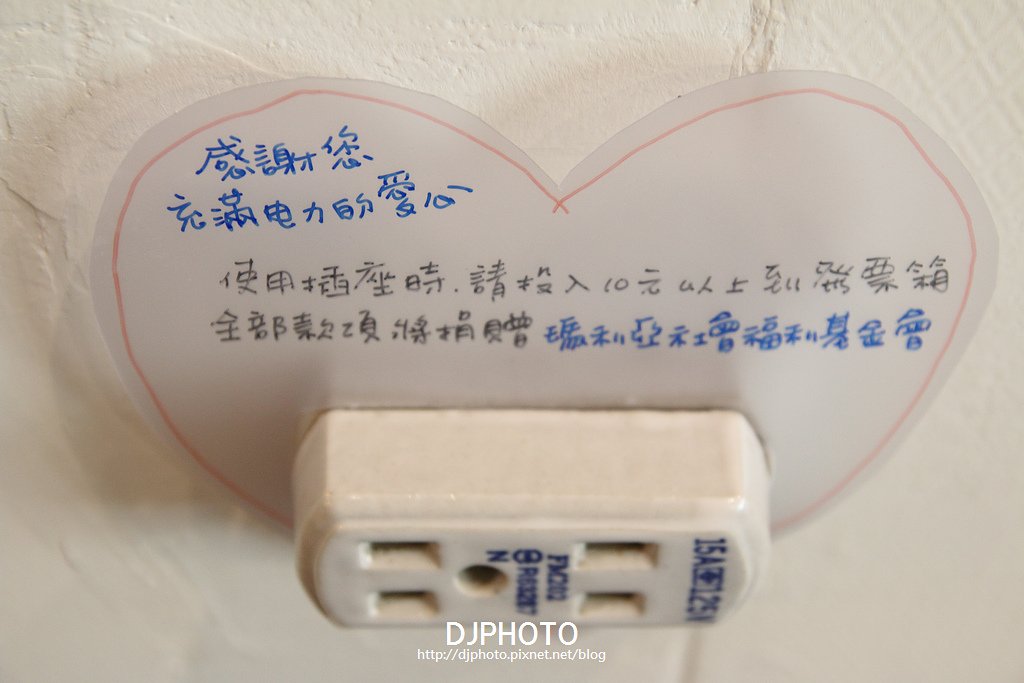 感謝您
充滿电力的愛心
使用插座時.請投入10元以上到發票箱
全部款項將捐贈瑪利亞社會福利基金會
15A 125V
PM202
R03287
N
DJPHOTO
http://djphoto.pixnet.net/blog